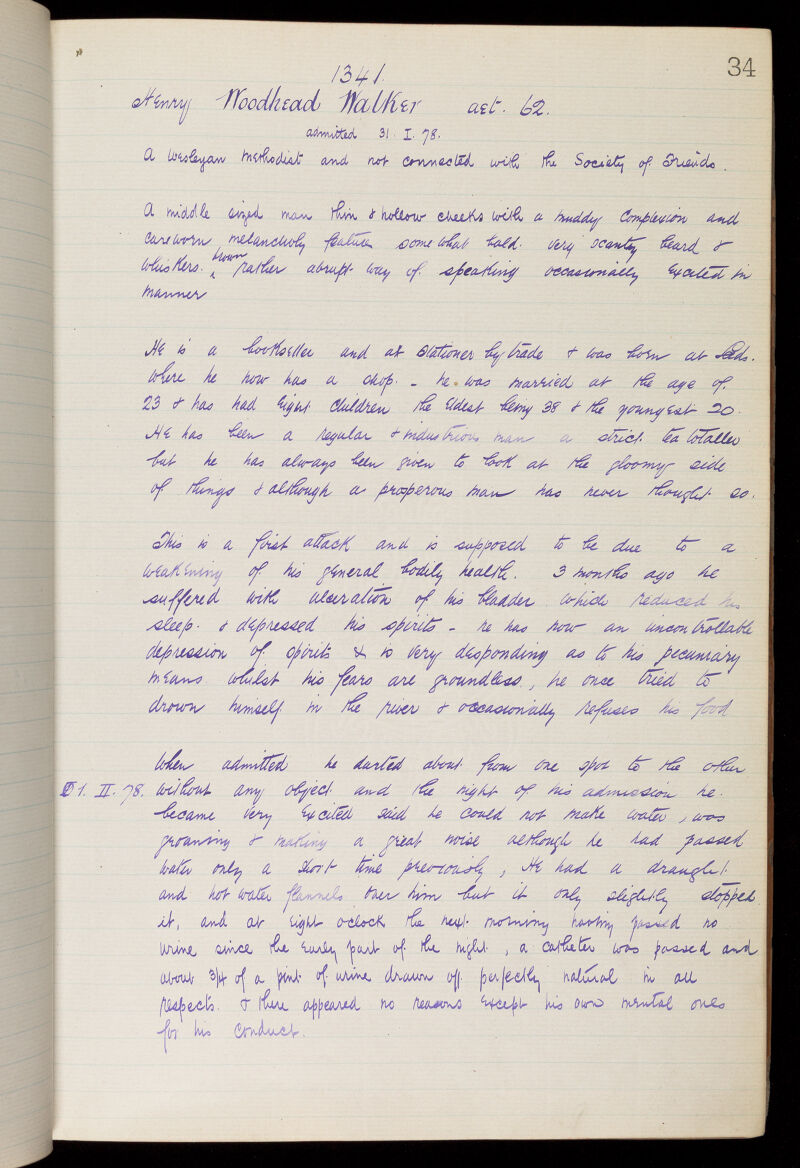 34
1341.
Henry Woodhead Walker aet. 62.
admitted 31. I. 78.
A Wesleyan Methodist and not connected with the Society of Friends.
A middle sized man thin & hollow cheeks with a muddy complexion and
careworn melancholy features somewhat bald. very scanty beard &
whiskers. brown rather abrupt way of speaking occasionally excited in
manner
He is a bookseller and at stationer by trade & was born at Leeds.
where he now has a shop. - he was married at the age of
23 & has had eight children the eldest being 38 & the youngest 20.
He has been a regular & industrious man a strict teatotaller
but he has always been given to look at the gloomy side
of things & although a prosperous man has never thought so.
This is a first attack and is supposed to be due to a
weakening of his general bodily health. 3 months ago he
suffered with ulceration of his bladder which reduced his
sleep. & depressed his spirits - he has now an uncontrollable
depression of spirits & is very desponding as to his pecuniary
means whilst his fears are groundless, he once tried to
drown himself in the river & occasionally refuses his food
When admitted he darted about from one spot to the other
1. II. 78. without any object and the night of his admission he
became very excited said he could not make water, was
groaning & making a great noise although he had passed
water only a short time previously, He had a draught
and hot water flannels over him but it only slightly stopped
it, and at eight oclock the next morning having passed no
urine since the early part of the night, a catheter was passed and
about 3/4 of a pint of urine drawn off perfectly natural in all
respects. & there appeared no reasons except his own mental ones
for his conduct.